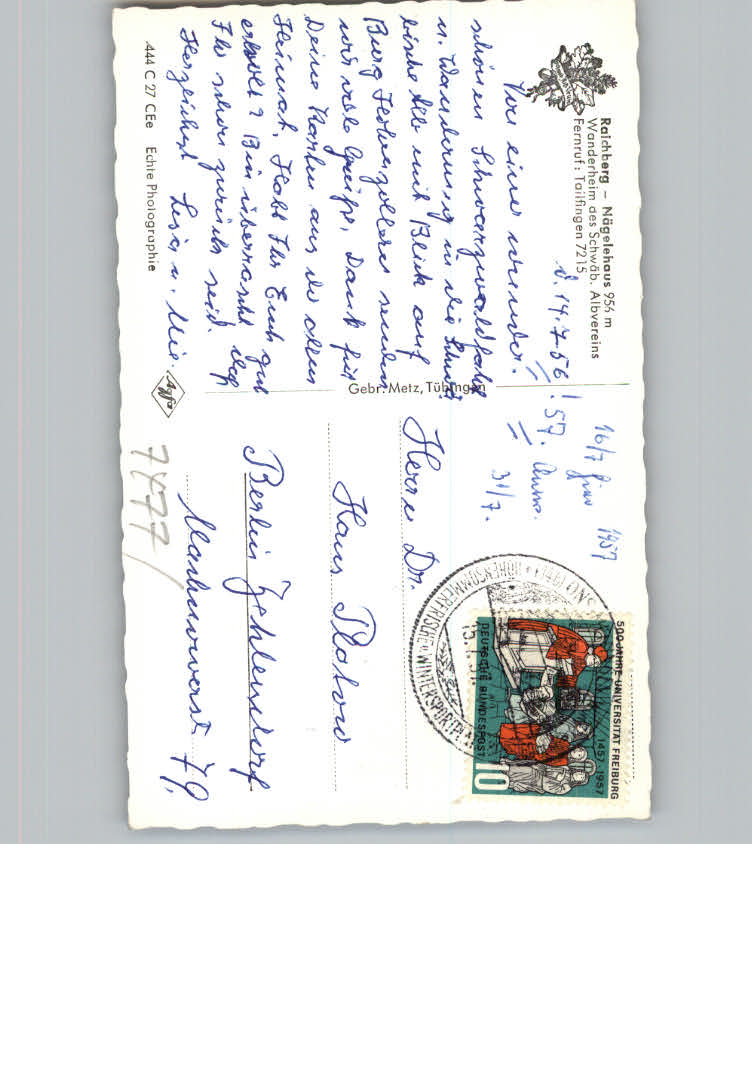 Raichberg – Nägelehaus 956 m
Wanderheim des Schwäb. Albvereins
Fernruf: Tailfingen 7215
d. 14.7.56 !
57.
Von einer wunder-
schönen Schwarzwaldfahrt
u. Wanderung in die Schwä-
bische Alb mit Blick auf
Burg Hohenzollern senden
wir viele Grüße. Dank für
Deine Karten aus der alten
Heimat. Habt Ihr Euch gut
erholt? Bin überrascht daß
Ihr schon zurück seid.
Herzlichst
444 C 27 CEe Echte Photographie
Agfa
Gebr. Metz, Tübingen
16/7 1957
31/7.
Herrn Dr.
Hans Platow
Berlin Zehlendorf
79,
7X77/
500 JAHRE UNIVERSITÄT FREIBURG
1457 1957
DEUTSCHE BUNDESPOST
10
HÖHENSOMMERFRISCHE u WINTERSPORTPLATZ